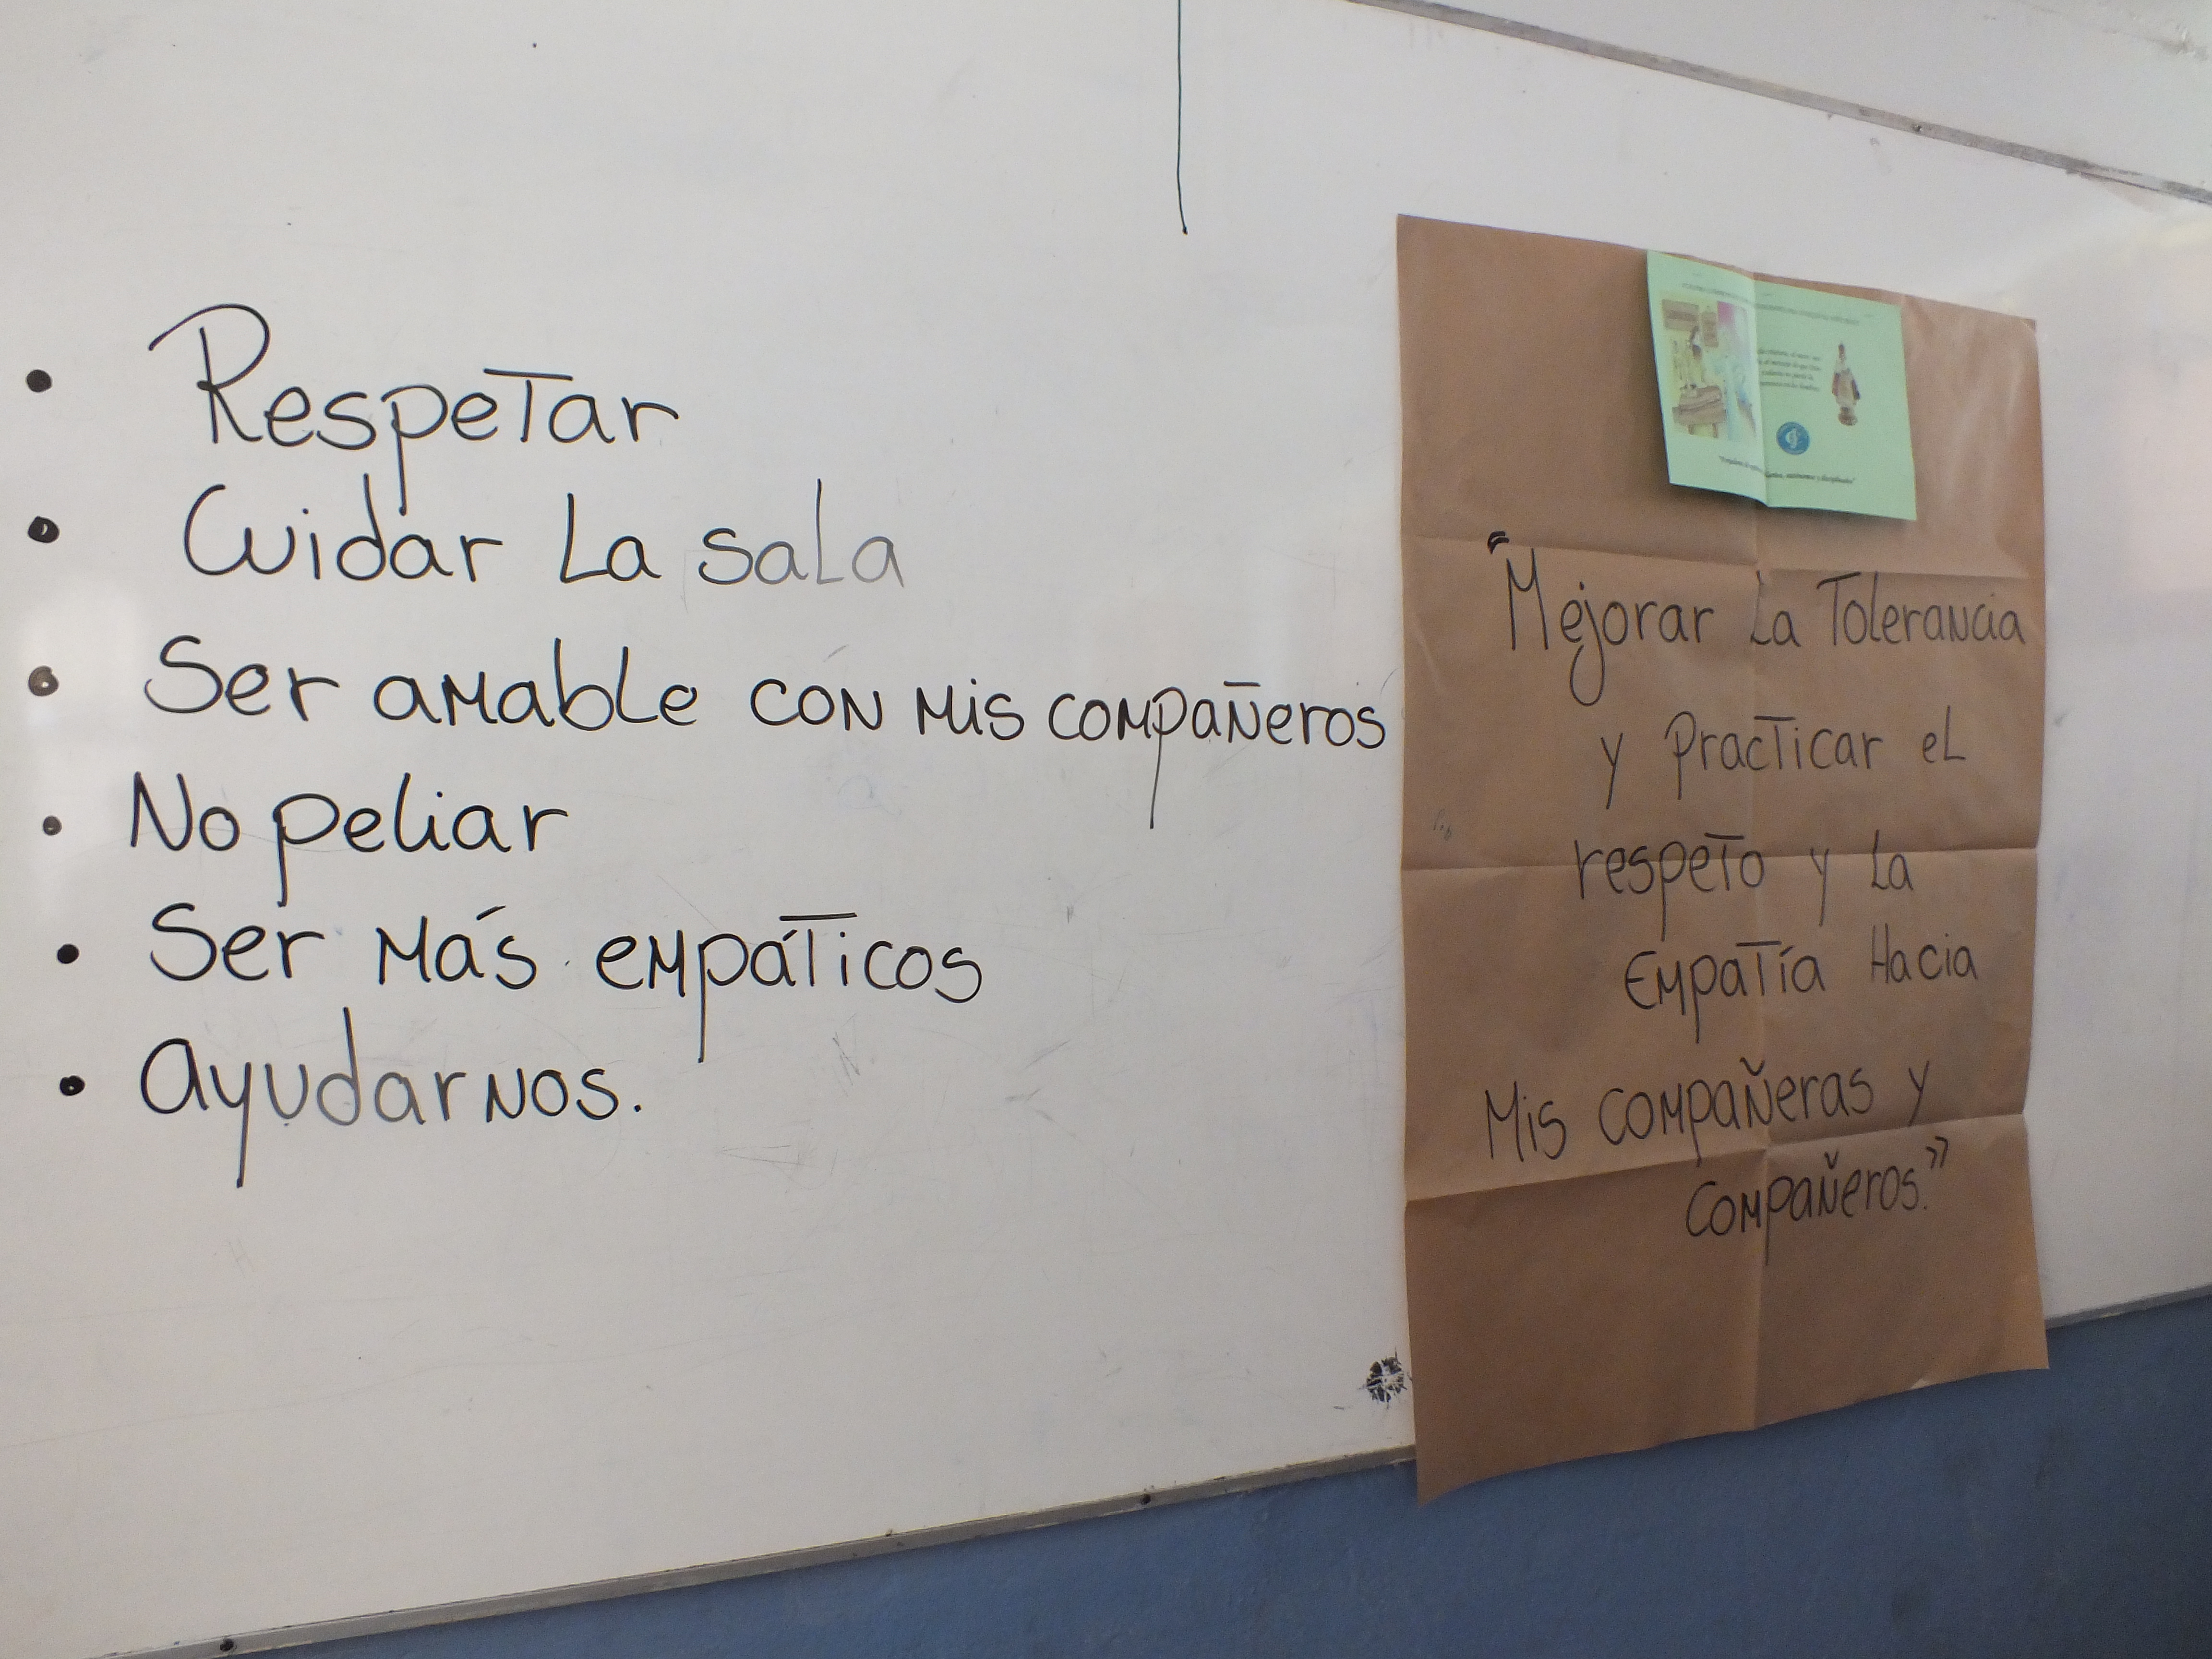 • Respetar
• Cuidar La sala
• Ser amable con mis compañeros
• No peliar
• Ser más empáticos
• ayudarnos.
"Mejorar La Tolerancia
y practicar el
respeto y La
Empatía Hacia
Mis compañeras y
compañeros."